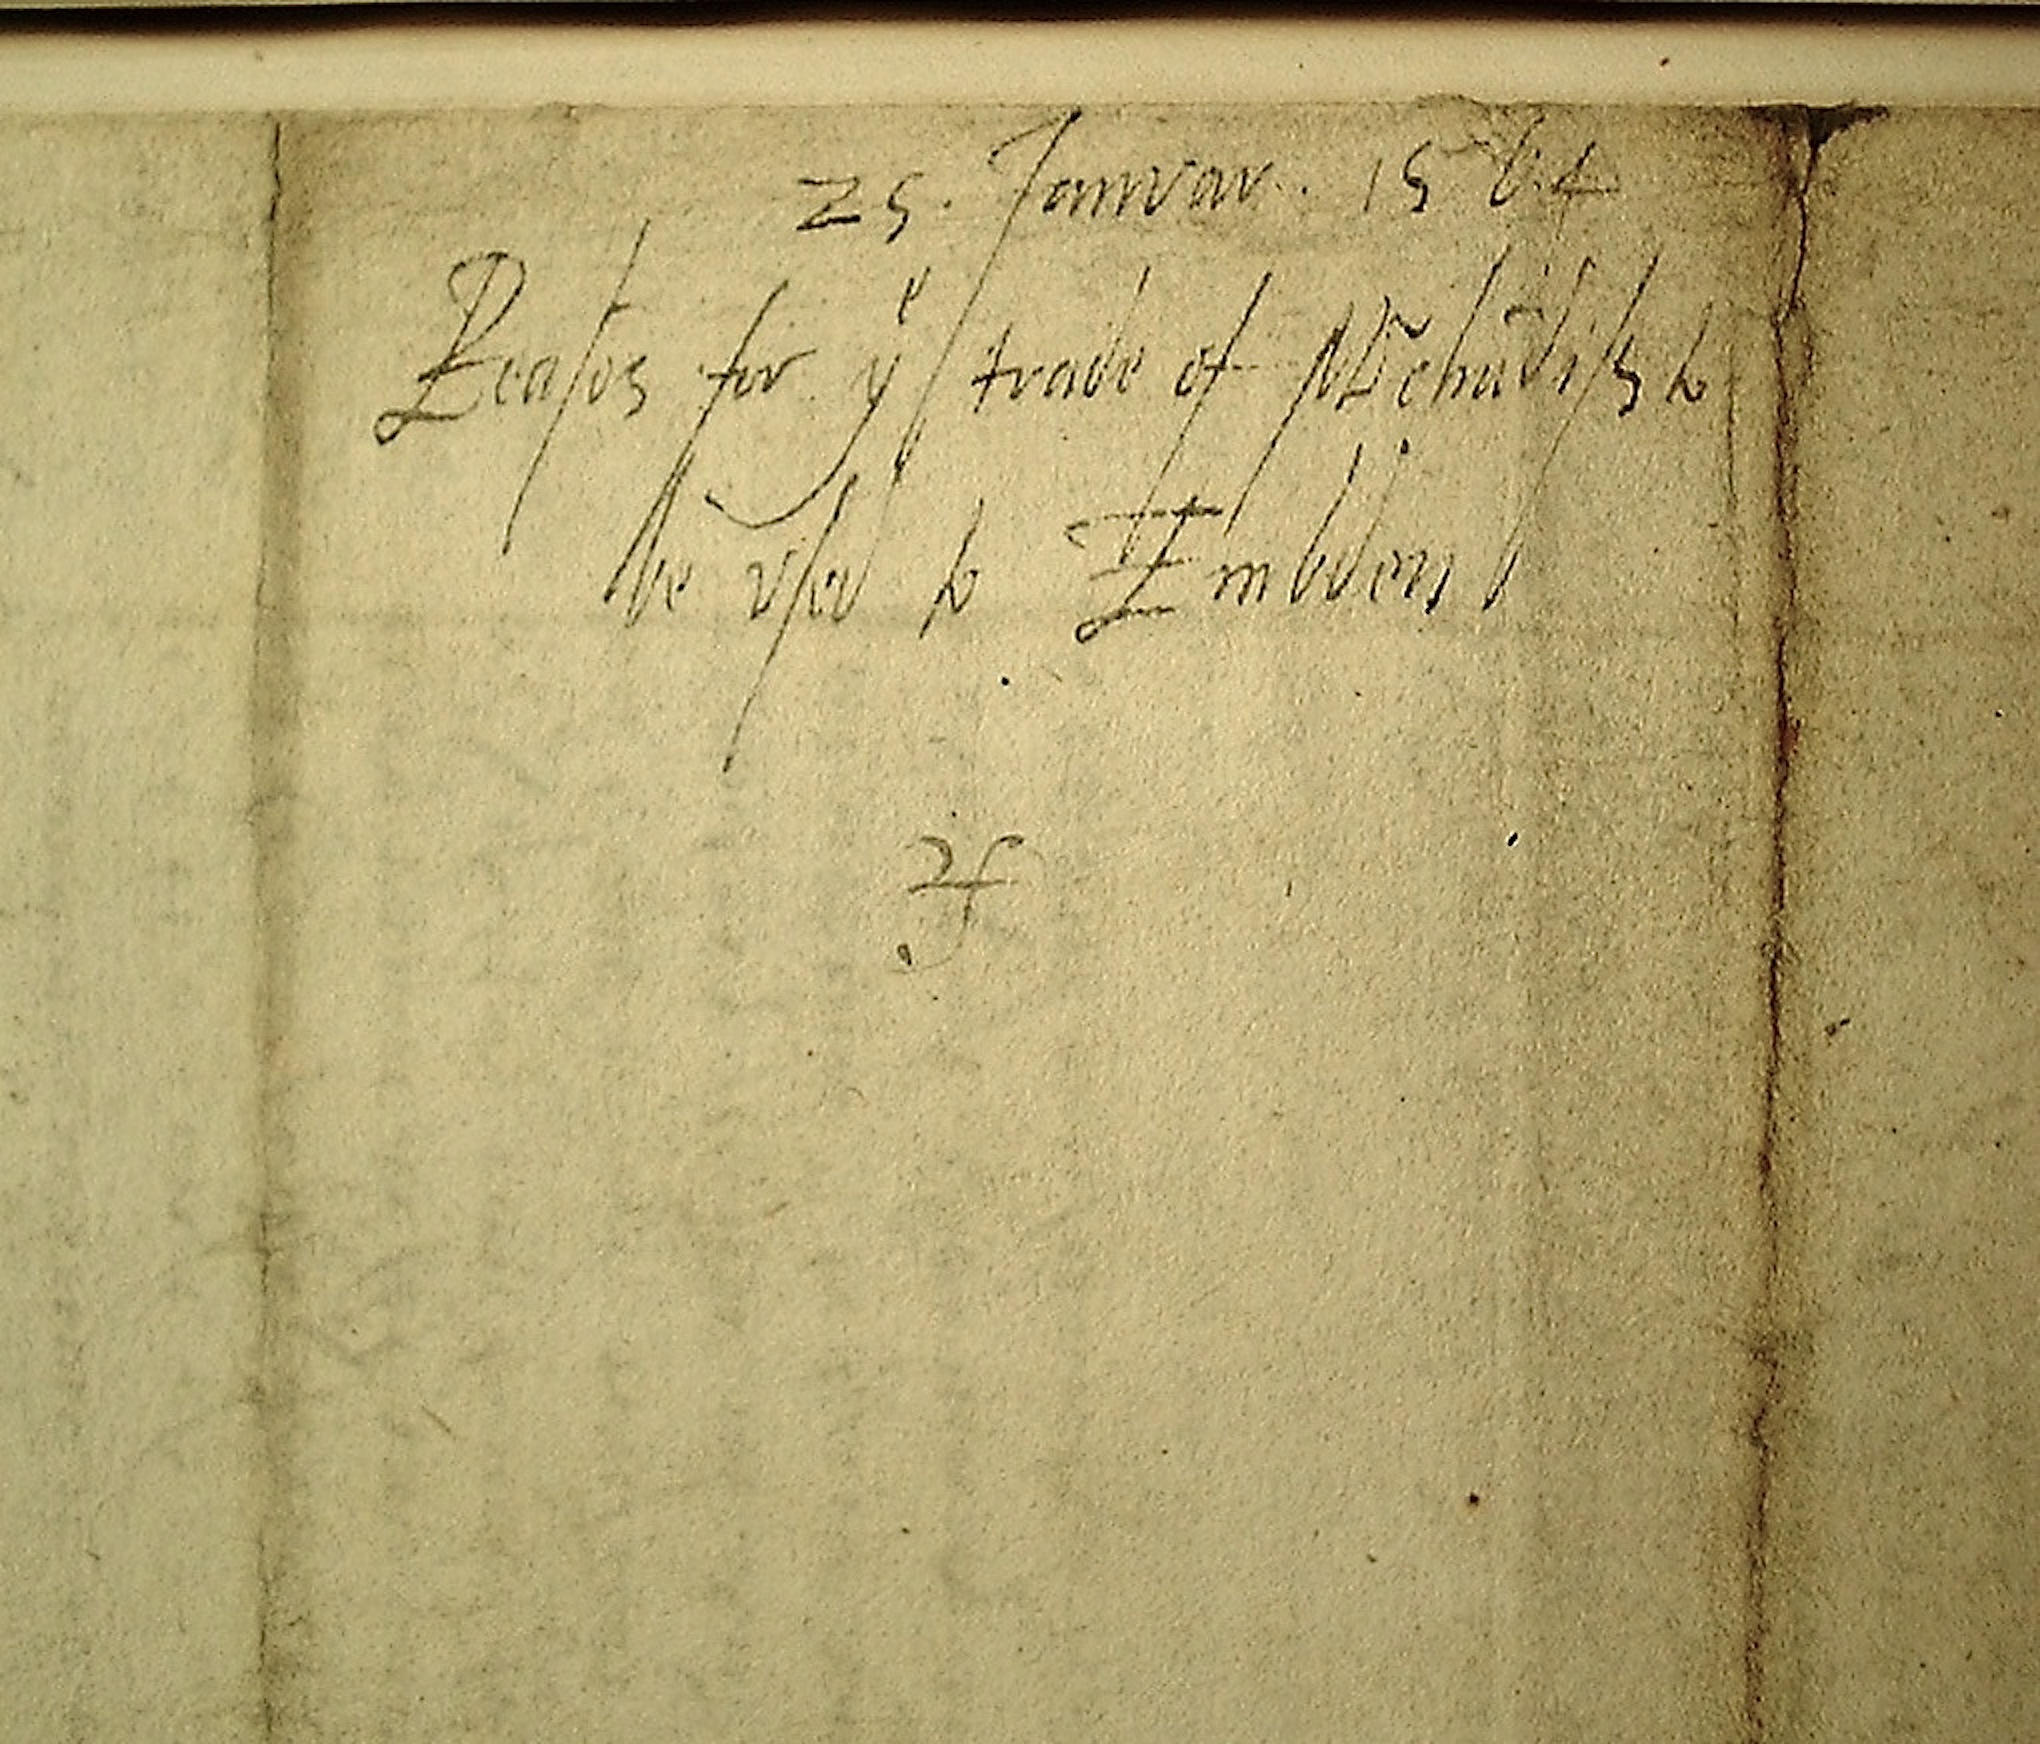 25. Januar. 1564
Reasõs for yͤ trade of M̃chũdiss to
be vsed to Embden